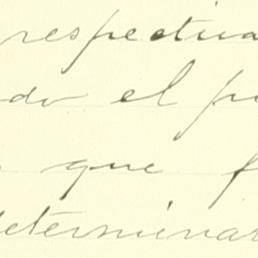 respectiva
do el p
que f
determinar